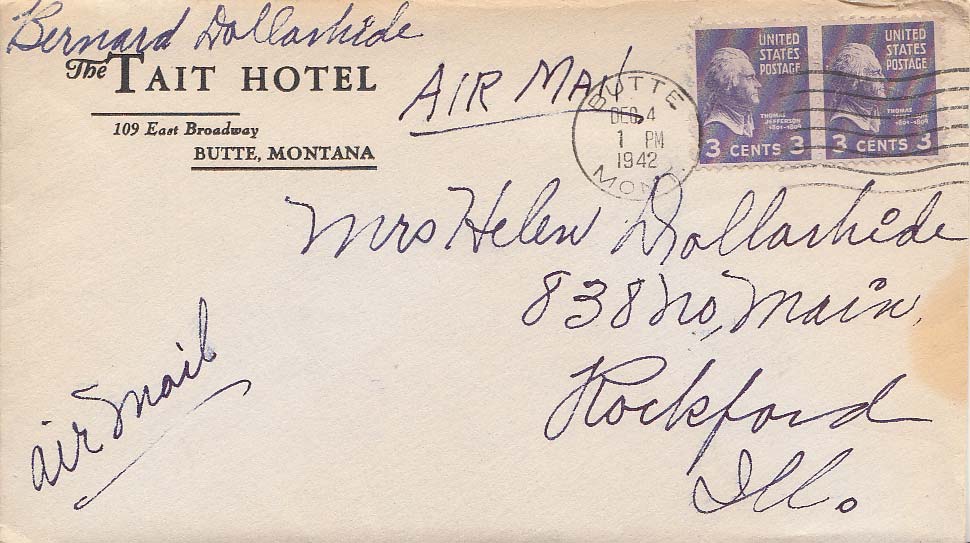 Bernard Dollarhide
The TAIT HOTEL
109 East Broadway
BUTTE, MONTANA
AIR MAIL
BUTTE
DEC 4
1 PM
1942
MONT.
UNITED
STATES
POSTAGE
THOMAS
JEFFERSON
1801-1809
3 CENTS 3
UNITED
STATES
POSTAGE
THOMAS
JEFFERSON
1801-1809
3 CENTS 3
Mrs Helen Dollarhide
838 No, Main,
Rockford
Ill.
air mail